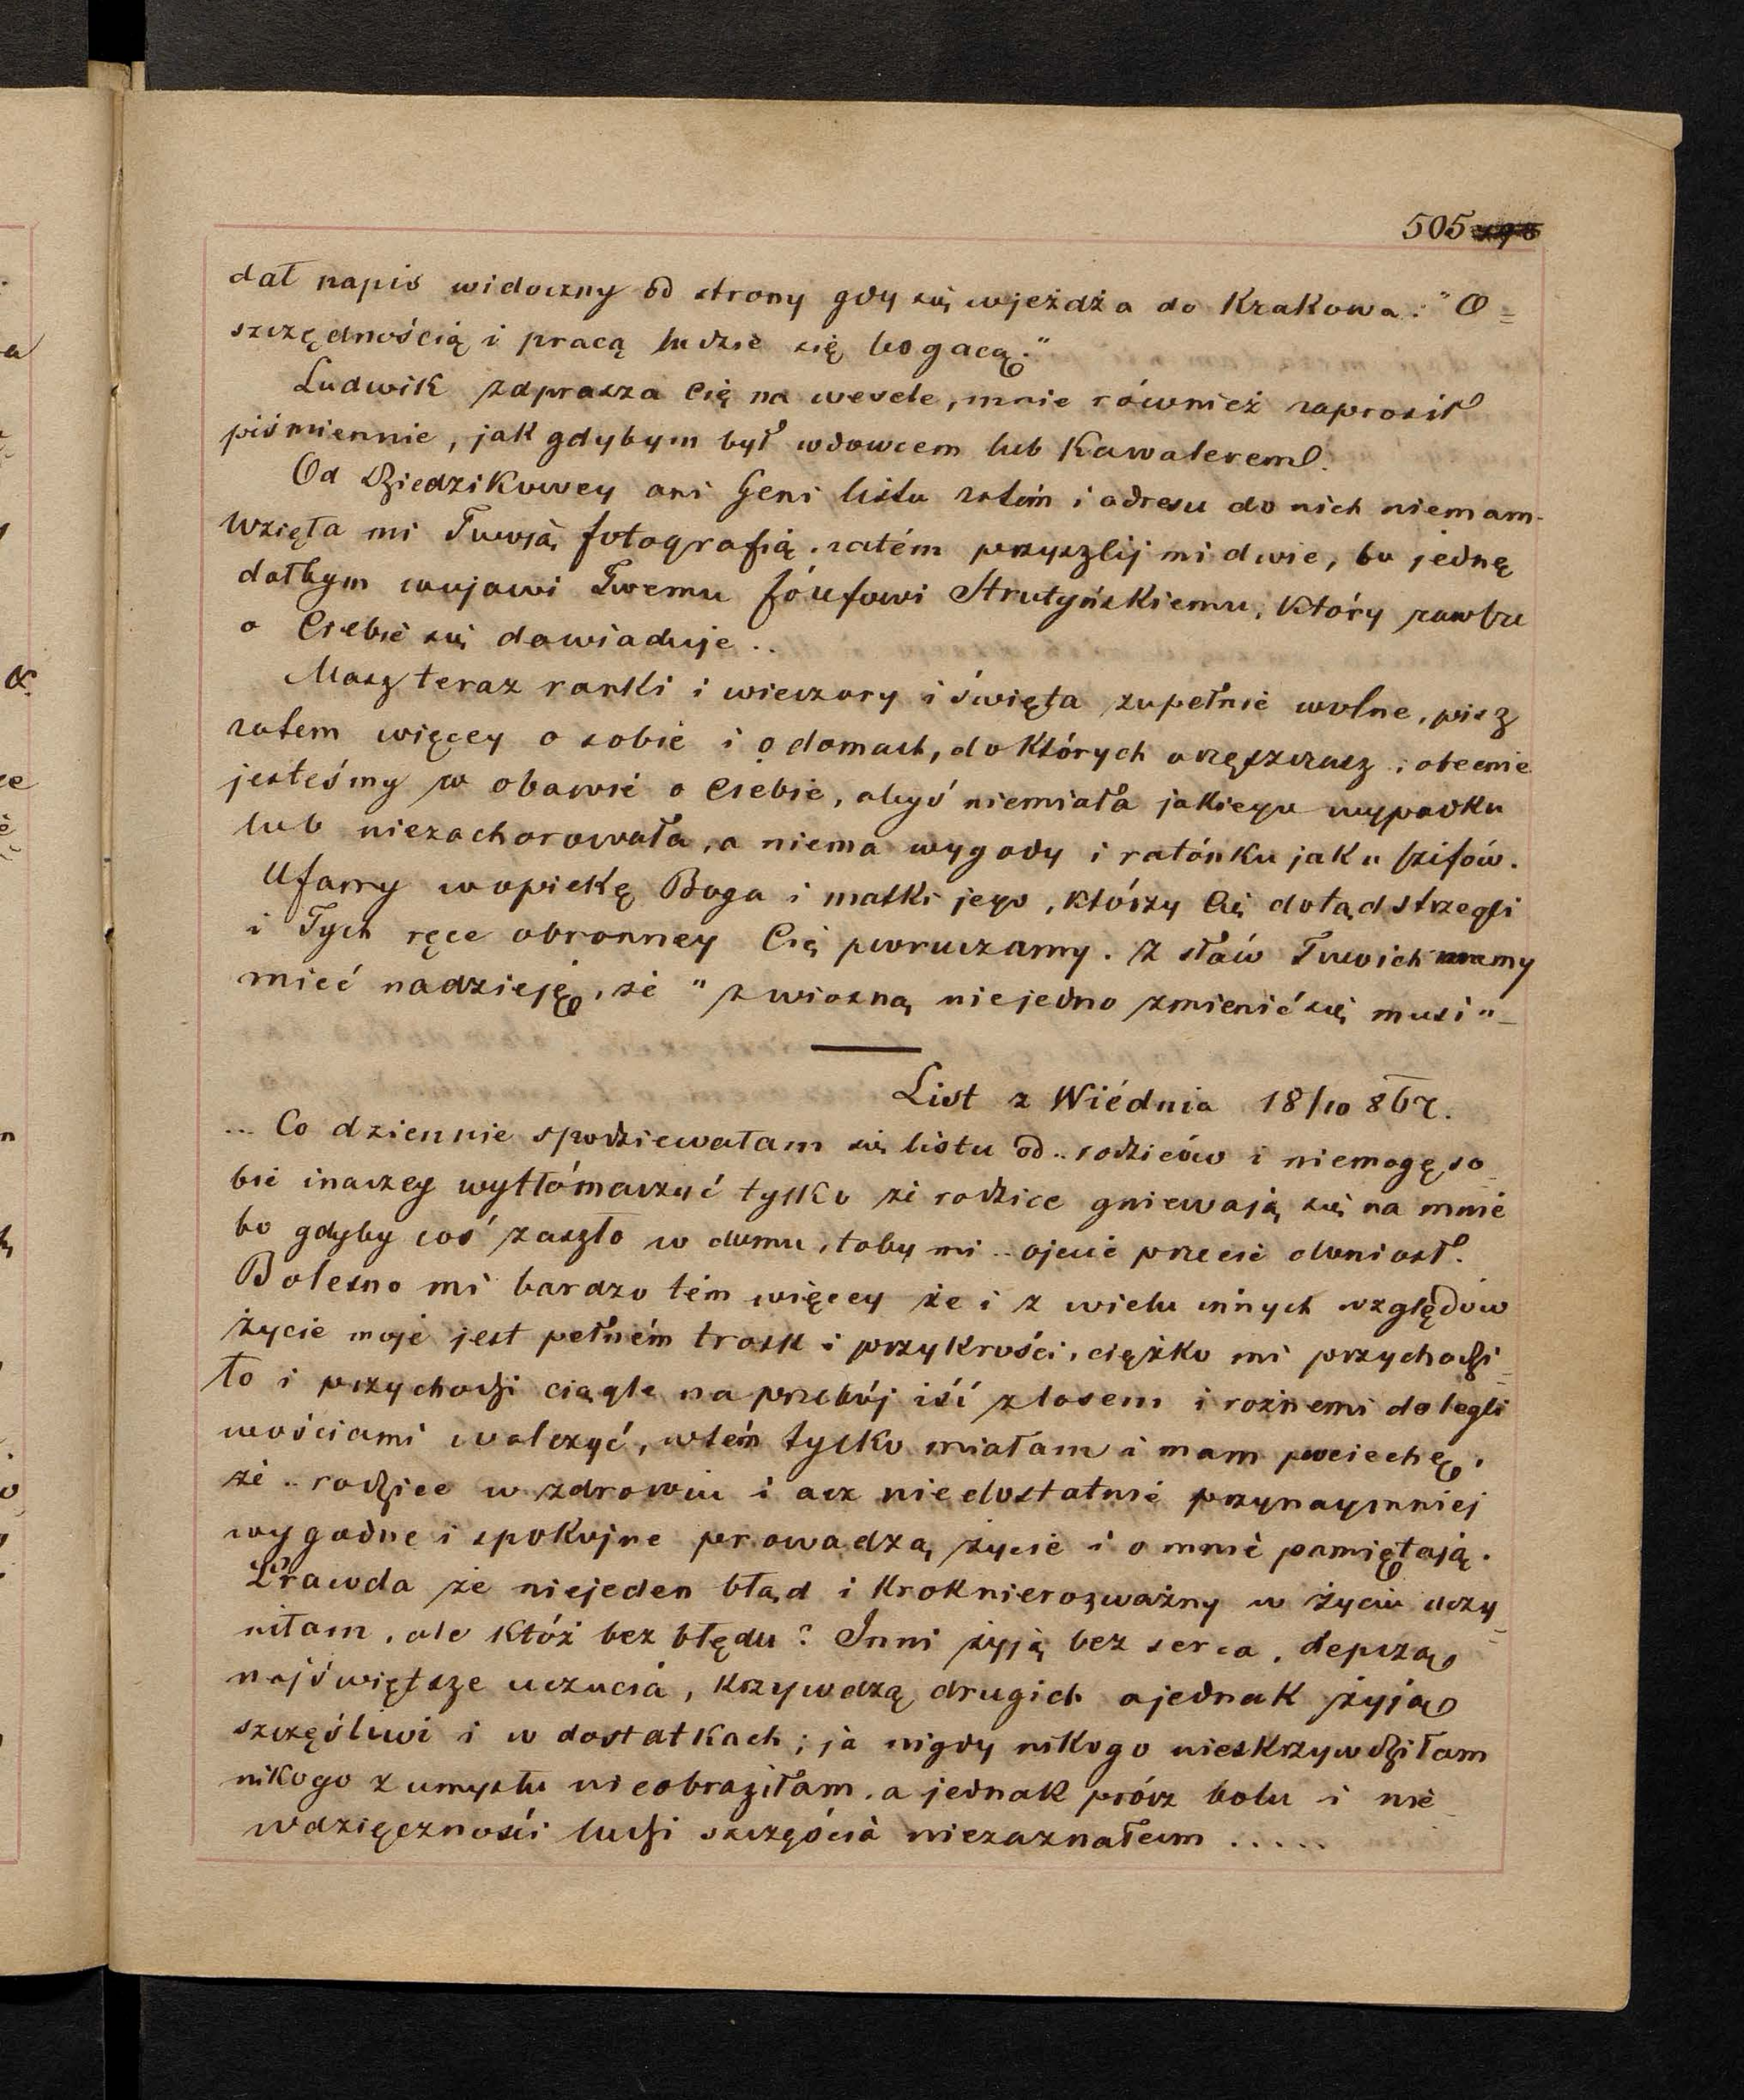 505
dał napis widoczny od strony gdy się wjeżdża do Krakowa: "O=
szczędnością i pracą ludzie się bogacą."
Ludwik zaprasza Cię na wesele, mnie również zaprosił
piśmiennie, jak gdybym był wdowcem lub Kawalerem.
Od Dziedzikowey ani Geni listu zatém i adresu do nich niemam.
Wzięła mi Twoją fotografią, zatém przyszlij mi dwie, bo jednę
dałbym wujowi Twemu Józefowi Strutyńskiemu, który zawsze
o Ciebie się dowiaduje..
Masz teraz ranki i wieczory i święta zupełnie wolne, pisz
zatem więcey o sobie i o domach, do których uczęszczasz; obecnie
jesteśmy w obawie o Ciebie, abyś niemiała jakiego wypadku
lub niezachorowała, a niema wygody i ratónku jak u
Ufamy w opiekę Boga i matki jego, którzy Cię dotąd strzegli
i Tych ręce obronney Cię poruczamy. Z słów Twoich mamy
mieć nadzieję, że "z wiosną niejedno zmienić się musi"_
List z Wiédnia 18/10 867.
... Co dziennie spodziewałam się listu od.. rodziców i niemogę so_
bie inaczey wytłómaczyć tylko że rodzice gniewają się na mnie
bo gdyby coś zaszło w domu, toby mi.. ojcie przecie doniosł.
Bolesno mi bardzo tém więcey że i z wielu innych względów
życie moje jest pełném trosk i przykrości, ciężko mi przychodzi=
ło i przychodzi ciągle na przebój iść z losem i rożnemi dolegli
wościami walczyć, wtém tylko miałam i mam pociechę,
że.. rodzice w zdrowiu i acz niedostatnie przynaymniej
wygodne i spokojne prowadzą życie i o mnie pamiętają.
Prawda że niejeden błąd i krok nierozważny w życiu uczy=
niłam, ale któż bez błędu? Inni żyją bez serca, depczą
najświętsze uczucia, krzywdzą drugich a jednak żyją
szczęśliwi i w dostatkach; ja nigdy nikogo nieskrzywdziłam
nikogo z umysłu nieobraziłam, a jednak prócz bolu i nie_
wdzięczności ludzi szczęścia niezaznałam .....